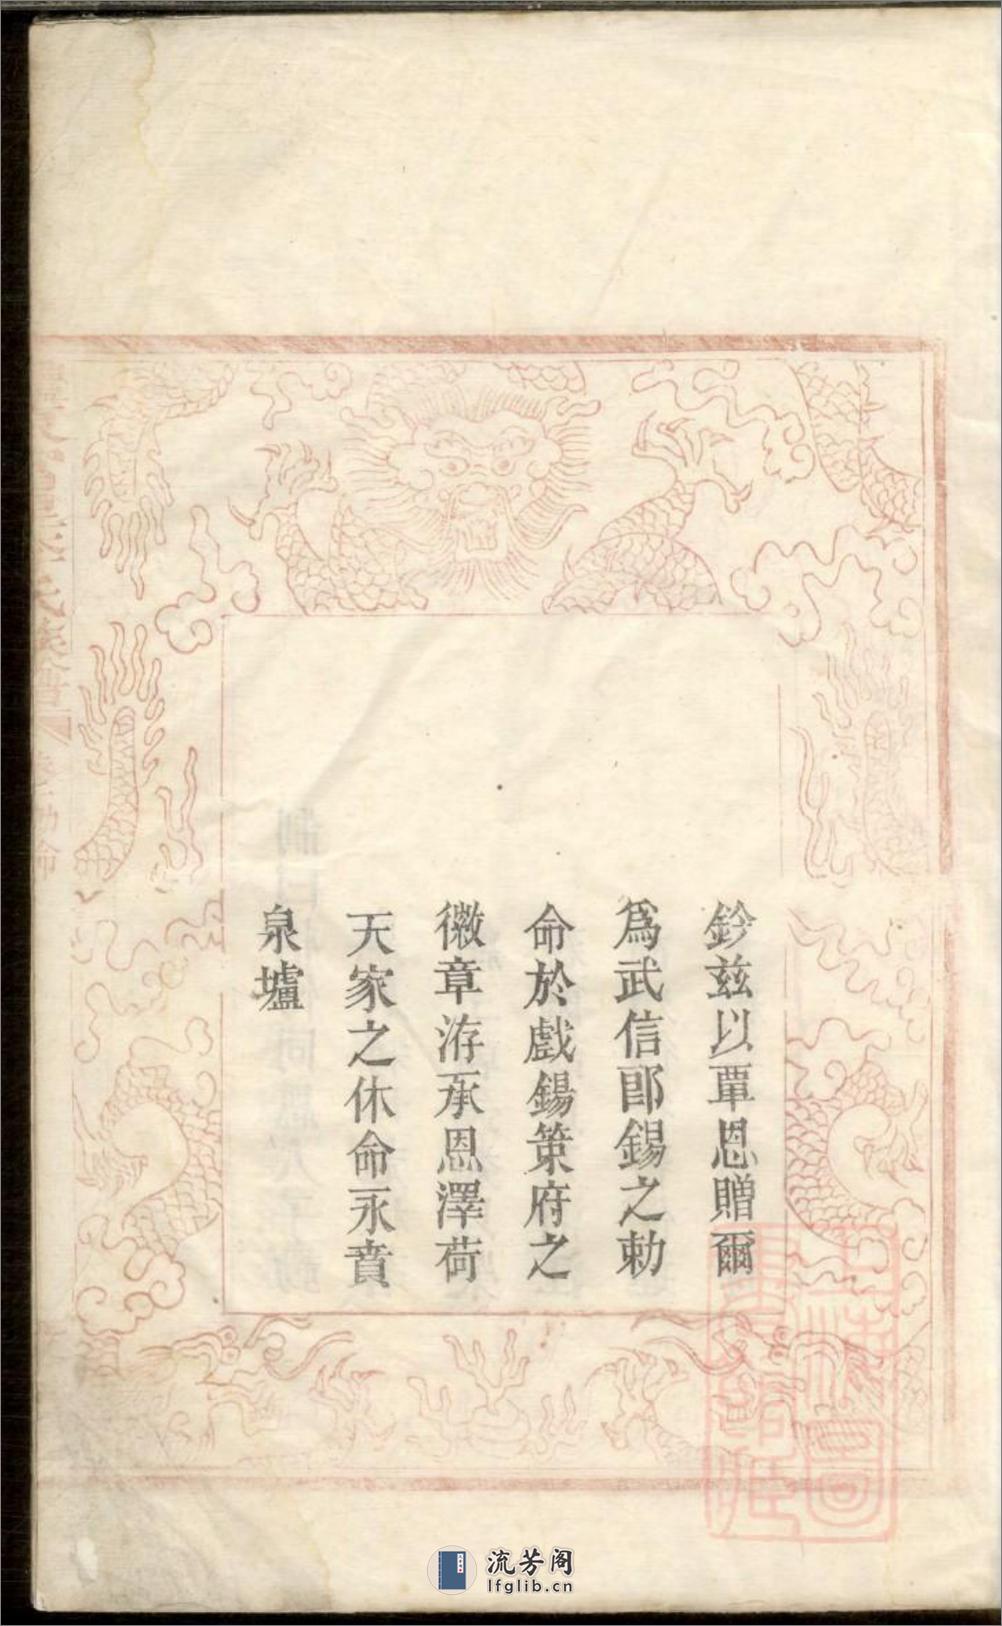 鈐兹以覃恩贈爾
爲武信郎錫之勅
命於戲錫策府之
徽章洊承恩澤荷
天家之休命永賁
泉壚
流芳阁
lfglib.cn